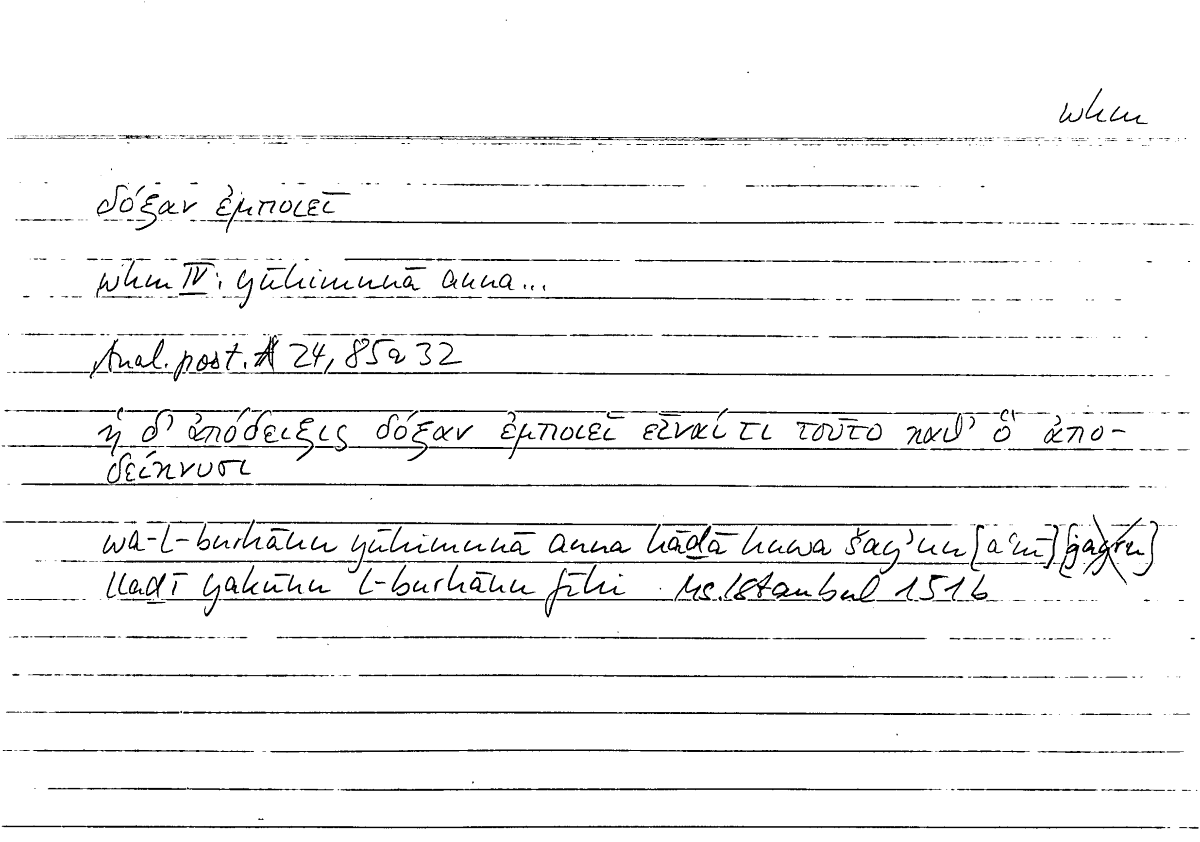 whm
δόξαν ἐμποιεῖ
whm IV: yūhimunā anna...
Anal. post. A 24, 85a 32
ἡ δ' ἀπόδειξις δόξαν ἐμποιεῖ εἶναί τι τοῦτο καθ' ὃ ἀπο-
δείκνυσι
wa-l-burhānu yūhimunā anna hāḏā huwa šay'un [a'nī]
lladī yakūnu l-burhānu fīhi Ms. Istanbul 151b